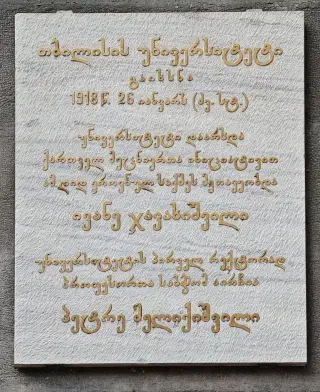 თბილისის უნივერსიტეტი
გაიხსნა
1918 წ. 26 იანვარს (ძვ. სტ.)
უნივერსიტეტი დაარსდა
ქართველ მეცნიერთა ინიციატივით
ამ დიდ ეროვნულ საქმეს მეთაურობდა
ივანე ჯავახიშვილი
უნივერსიტეტის პირველ რექტორად
პროფესორთა საბჭომ აირჩია
პეტრე მელიქიშვილი